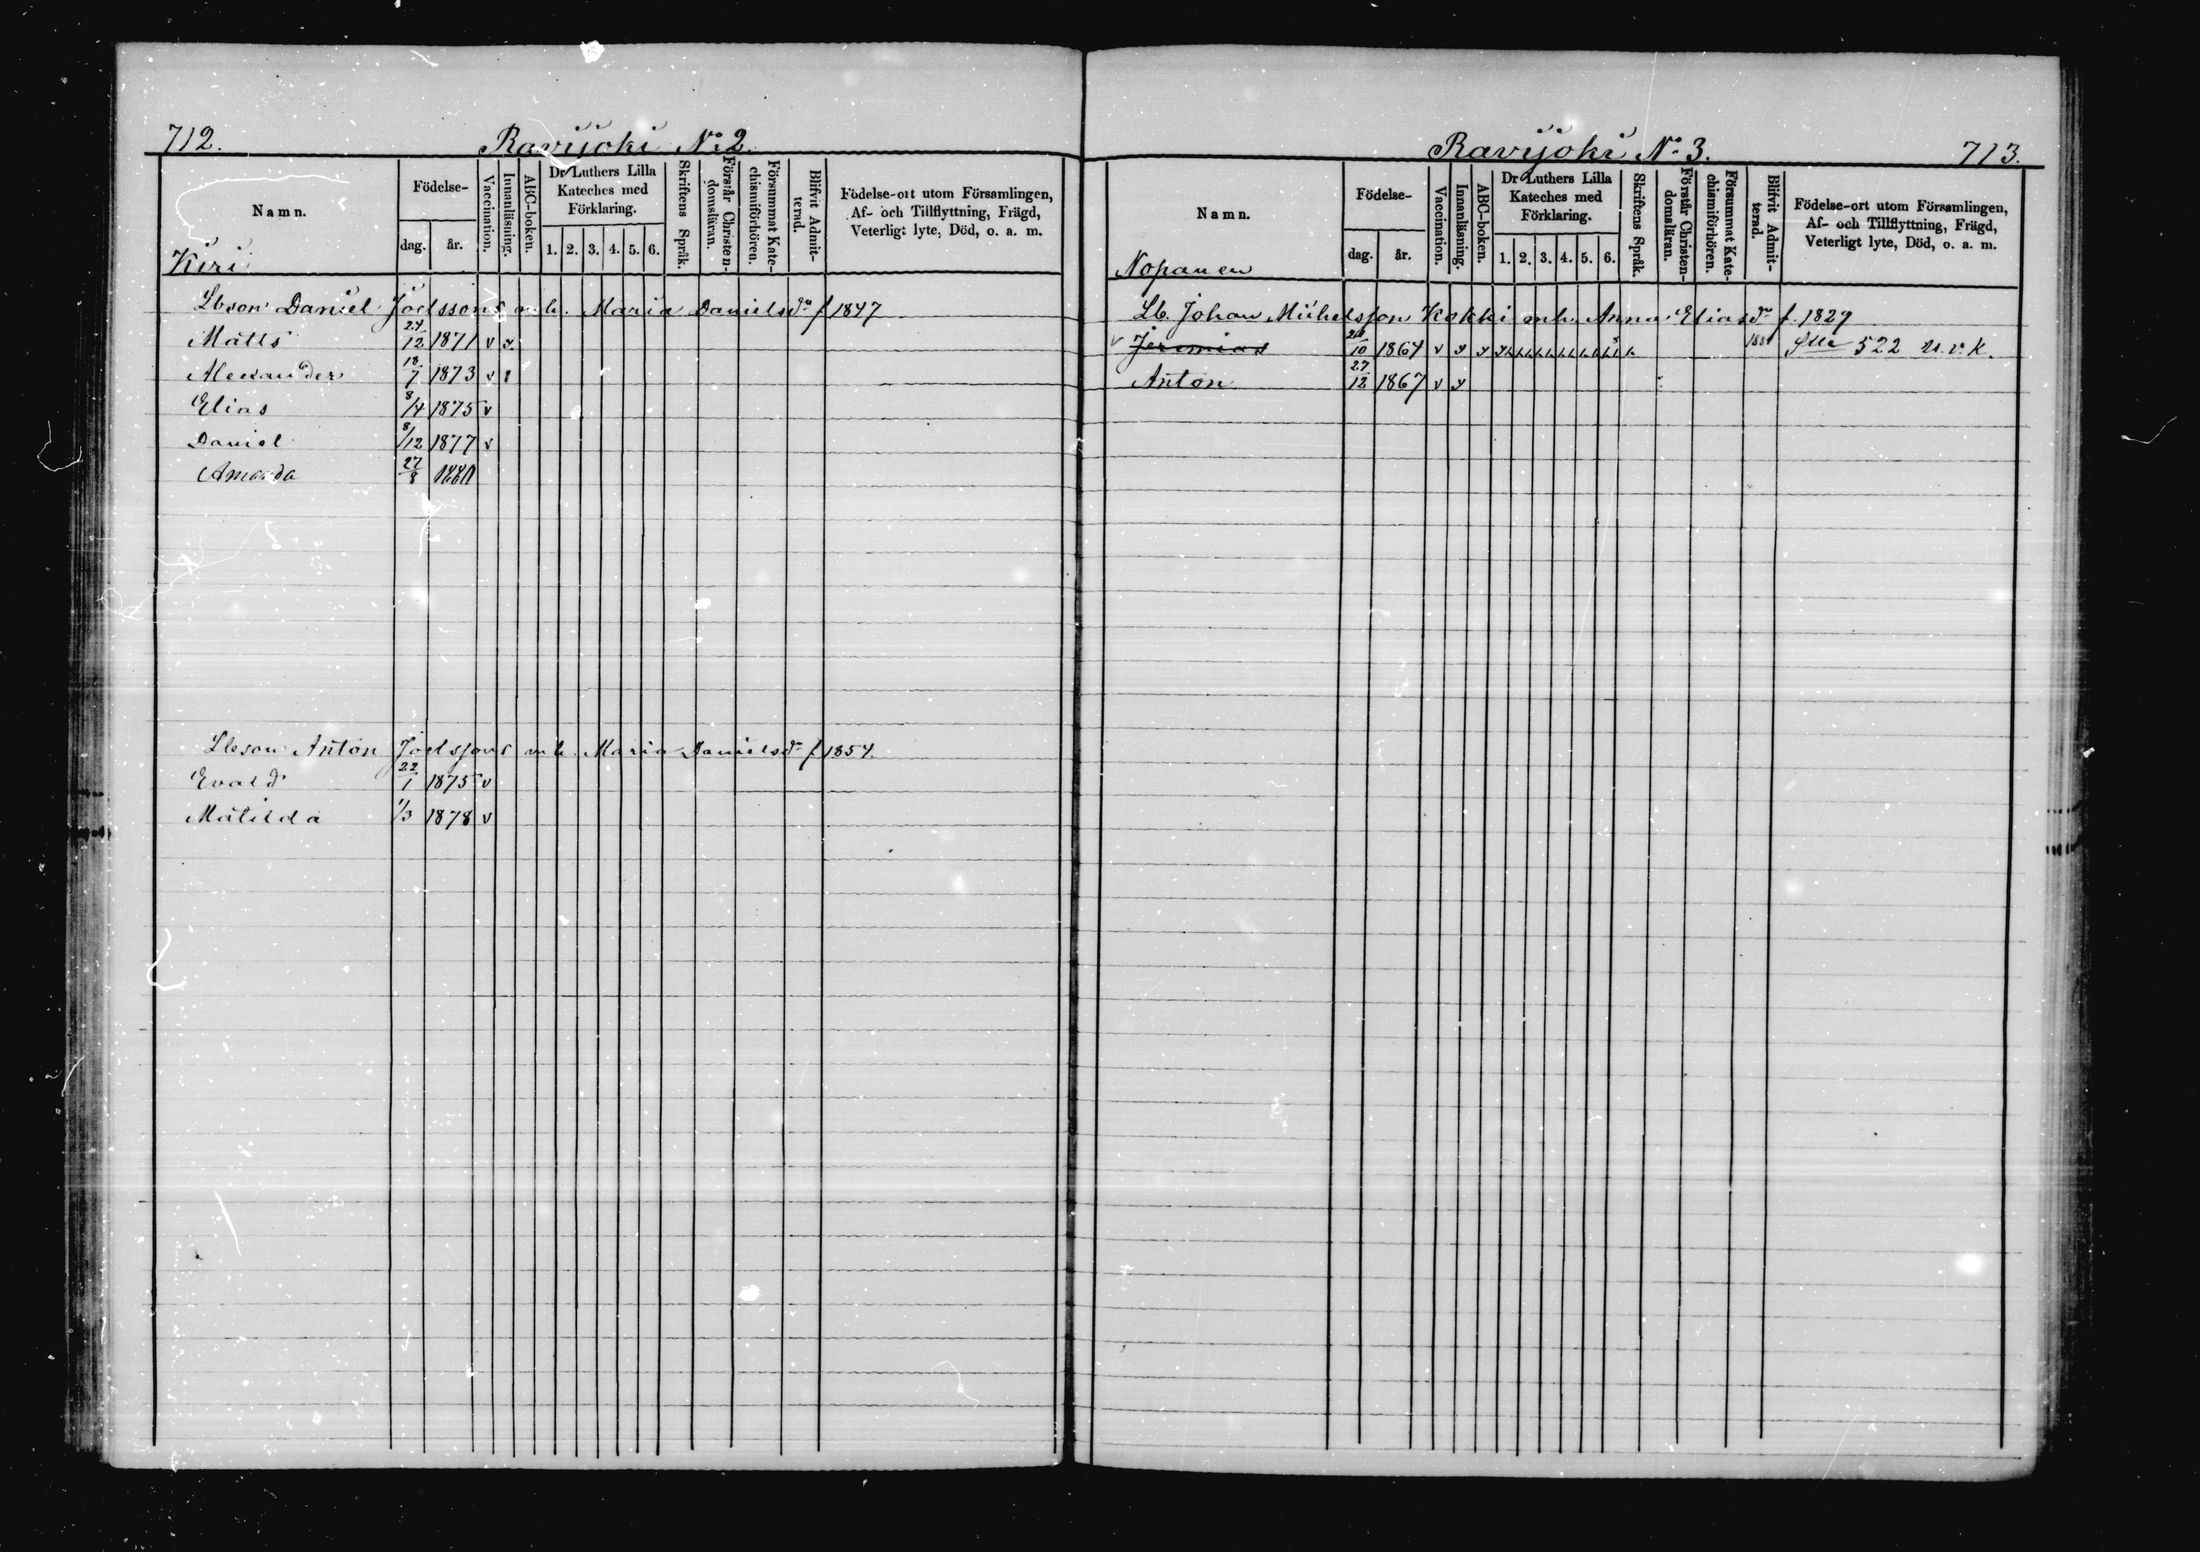 712.
Ravijoki No 2.
Namn.
Födelse-
dag.
år.
Vaccination.
Innanläsning.
ABC-boken.
Dr Luthers Lilla
Kateches med
Förklaring.
1. 2. 3. 4. 5. 6.
Skriftens Språk.
Förstår Christen-
domsläran.
Försummat Kate-
chismiförhören.
Blifvit Admit-
terad.
Födelse-ort utom Församlingen,
Af- och Tillflyttning, Frägd,
Veterligt lyte, Död, o. a. m.
Kiri
Lbson Daniel Joelssons m h. Maria Danielsdr f 1847
Matts 24/12 1871 v
Alexander 18/7 1873 v
Elias 8/4 1875 v
Daniel 8/12 1877 v
Amanda 27/8 1880
Lbson Anton Joelssons m h. Maria Danielsdr f 1854.
Evald 22/1 1875 v
Matilda 1/3 1878 v
Ravijoki No 3.
713.
Namn.
Födelse-
dag.
år.
Vaccination.
Innanläsning.
ABC-boken.
Dr Luthers Lilla
Kateches med
Förklaring.
1. 2. 3. 4. 5. 6.
Skriftens Språk.
Förstår Christen-
domsläran.
Försummat Kate-
chismiförhören.
Blifvit Admit-
terad.
Födelse-ort utom Församlingen,
Af- och Tillflyttning, Frägd,
Veterligt lyte, Död, o. a. m.
Nopanen
Lb. Johan Michelsson Kokki m h. Anna Eliasdr f. 1829
v Jeremias 10 1864 v 522 n. v. k.
Anton 27/12 1867 v